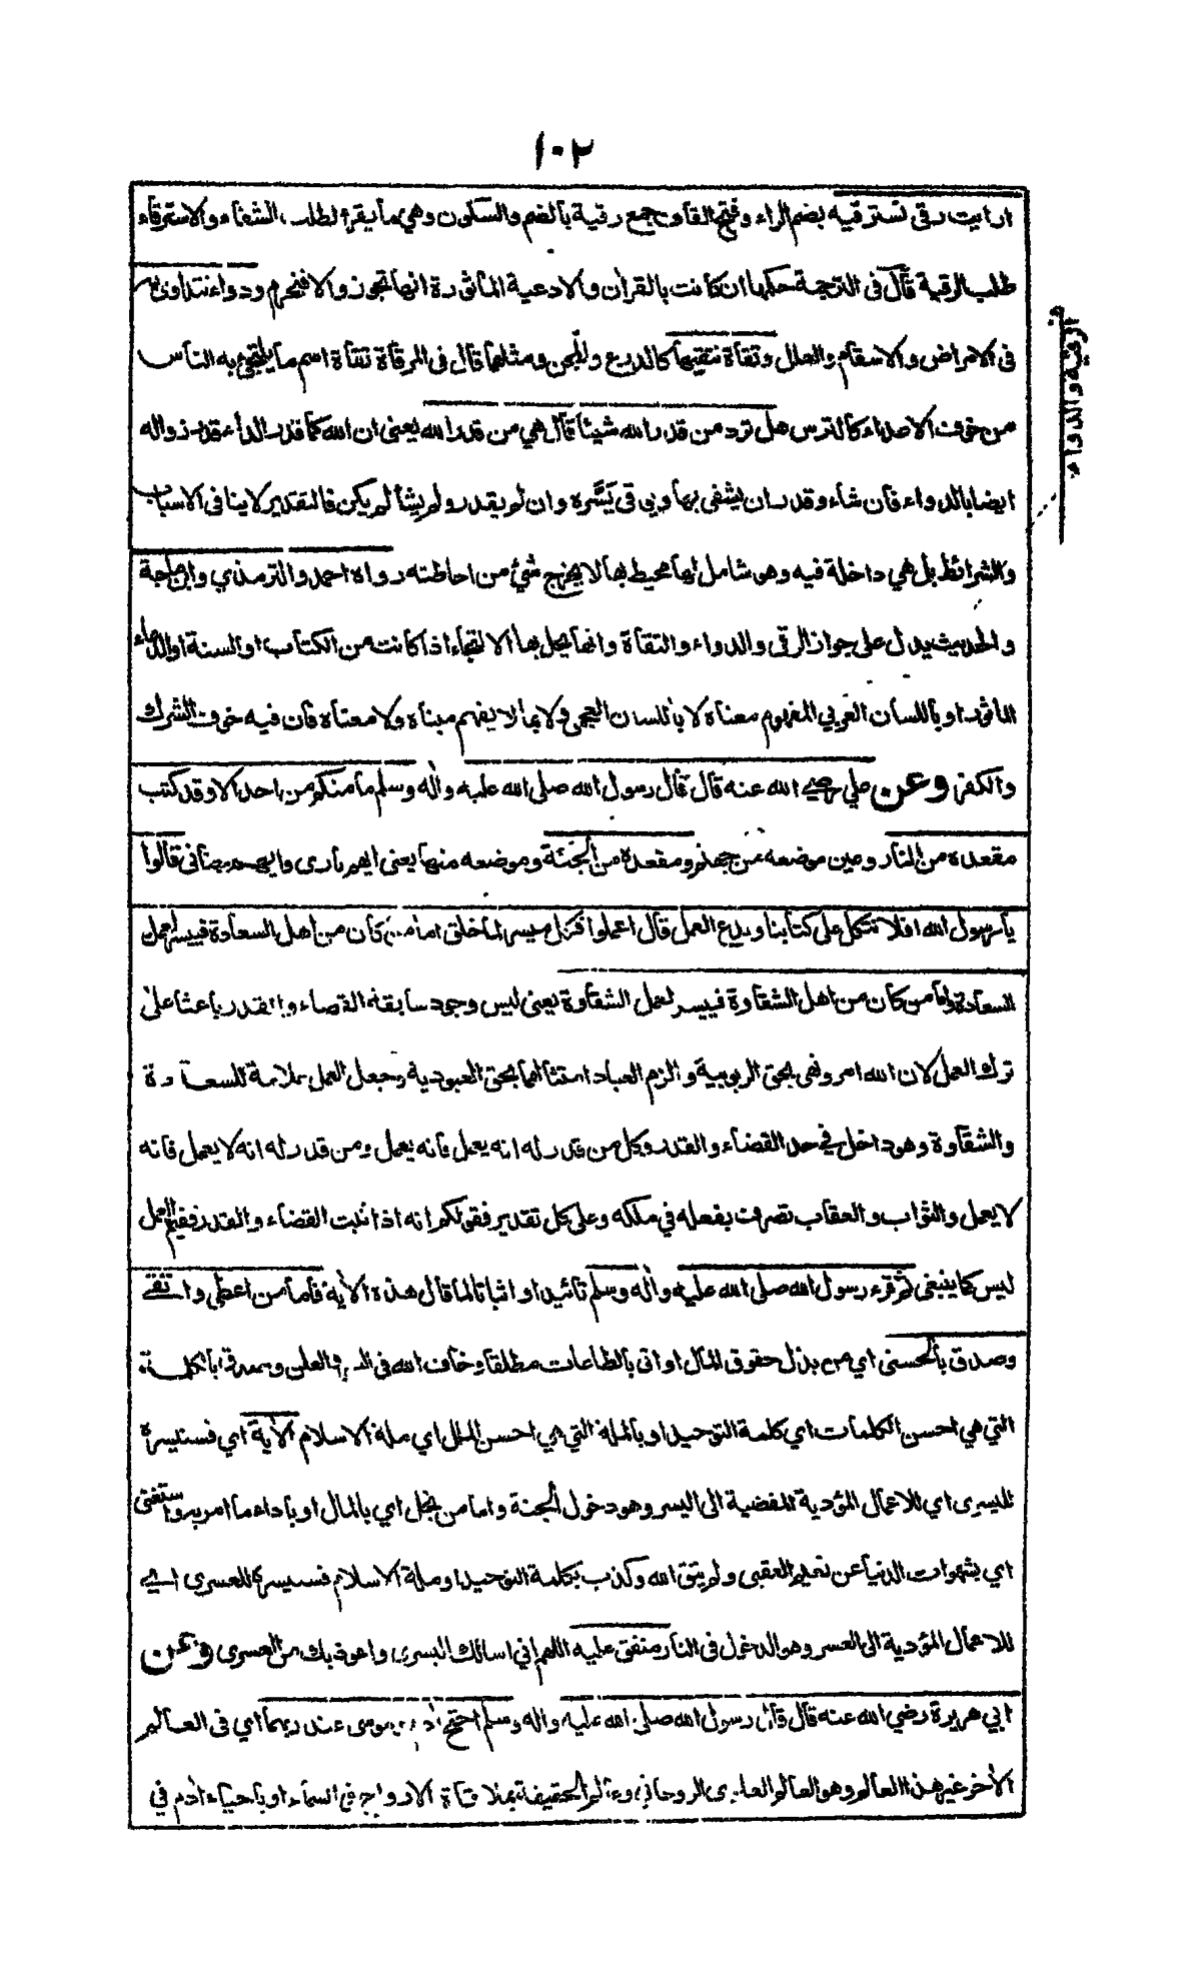 ١٠٢
ارايت رقى نسترقيه بضم الراء وفتح القاف جمع رقية بالضم والسكون وهي ما يقرأ لطلب الشفاء والاسترقاء
طلب الرقية قال فى الترجمة حكمها ان كانت بالقران والادعية الماثورة انها تجوز والا فيحرم ودواء نتداوى به
فى الامراض والاسقام والعلل وتقاة نتقيها كالدرع والمجن ومثلها قال فى المرقاة تقاة اسم ما يلتجئ به الناس
من خوف الاعداء كالترس هل ترد من قدر الله شيئا قال هي من قدر الله يعنى ان الله كما قدر الداء قدر زواله
ايضا بالدواء فان شاء وقدر ان يشفى بها ويقى يسّره وان لم يقدر ولم يشأ لم يكن فالتقدير لا ينافى الاسباب
والشرائط بل هي داخلة فيه وهو شامل لها محيط بها لا يخرج شئ من احاطته رواه احمد والترمذي وابن ماجة
والحديث يدل على جواز الرقى والدواء والتقاة وانها يحل بها الالتجاء اذا كانت من الكتاب او السنة او الدعاء
الماثور او باللسان العربي المفهوم معناه لا باللسان العجمي ولا بما لا يفهم مبناه ولا معناه فان فيه خوف الشرك
والكفر وعن علي رضي الله عنه قال قال رسول الله صلى الله عليه واله وسلم ما منكم من احد الا وقد كتب
مقعده من النار وعين موضعه من جهنم ومقعده من الجنة وموضعه منها يعنى ايهم نارى وايهم جنانى قالوا
يا رسول الله افلا نتكل على كتابنا وندع العمل قال اعملوا فكل ميسر لما خلق اما من كان من اهل السعادة فييسر لعمل
السعادة واما من كان من اهل الشقاوة فييسر لعمل الشقاوة يعنى ليس وجود سابقة القضاء والقدر باعثا على
ترك العمل لان الله امر ونهى بحق الربوبية والزم العباد امتثالهما بحق العبودية وجعل العمل علامة للسعادة
والشقاوة وهو داخل في حد القضاء والقدر وكل من قدر له انه يعمل فانه يعمل ومن قدر له انه لا يعمل فانه
لا يعمل والثواب والعقاب تصرف بفعله في ملكه وعلى كل تقدير فقولكم انه اذا ثبت القضاء والقدر ففيم العمل
ليس كما ينبغى ثم قرء رسول الله صلى الله عليه واله وسلم تائيدا او اثباتا لما قال هذه الاٰية فاما من اعطى واتقى
وصدق بالحسنى اي من بذل حقوق المال او اتى بالطاعات مطلقا وخاف الله فى السر والعلن وصدق بالكلمة
التي هي احسن الكلمات اي كلمة التوحيد او بالملة التي هي احسن الملل اي ملة الاسلام الاٰية اي فسنيسره
لليسرى اي للاعمال المؤدية المفضية الى اليسر وهو دخول الجنة واما من بخل اي بالمال او باداء ما امر به واستغنى
اي بشهوات الدنيا عن نعيم العقبى ولم يتق الله وكذب بكلمة التوحيد او ملة الاسلام فسنيسره للعسرى اي
للاعمال المؤدية الى العسر وهو الدخول فى النار متفق عليه اللهم اني اسالك اليسرى واعوذ بك من العسرى وعن
ابي هريرة رضي الله عنه قال قال رسول الله صلى الله عليه واله وسلم احتج اٰدم وموسى عند ربهما اي فى العالم
الاٰخر غير هذا العالم وهو العالم العلوى الروحاني وعالم الحقيقة بملاقاة الارواح فى السماء او باحياء اٰدم في
الرقية والدواء